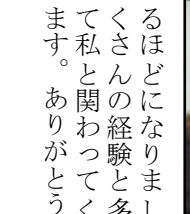 るほどになりまし
くさんの経験と多
て私と関わってく
ます。ありがとう